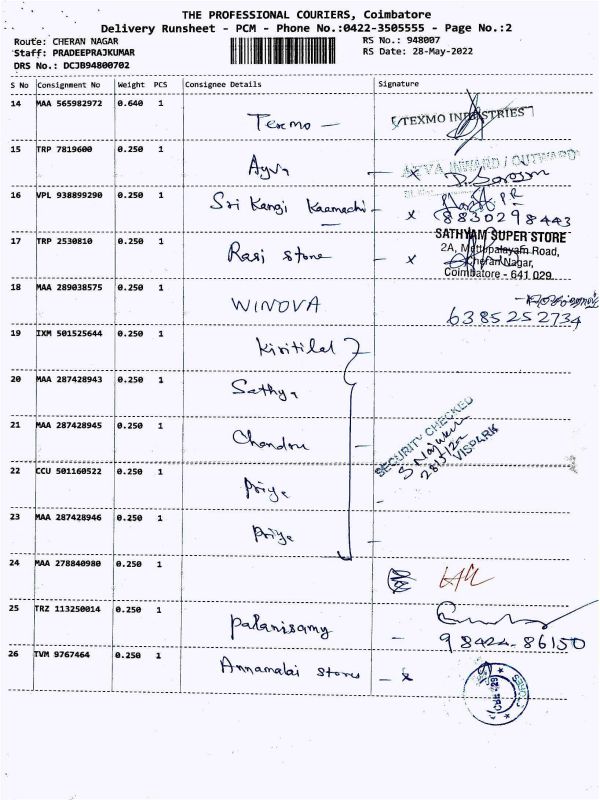 THE PROFESSIONAL COURIERS, Coimbatore
Delivery Runsheet - PCM - Phone No.:0422-3505555 - Page No.:2
Route: CHERAN NAGAR RS No.: 948007
Staff: PRADEEPRAJKUMAR RS Date: 28-May-2022
DRS No.: DCJB94800702
S No Consignment No Weight PCS Consignee Details Signature
14 MAA 565982972 0.640 1 Texmo - TEXMO INDUSTRIES
15 TRP 7819600 0.250 1 Ayya - x AYYA INWARD / OUTWARD
16 VPL 938899290 0.250 1 Sri Kangi Kaamachi - x
8830298443
17 TRP 2530810 0.250 1 Rasi stone - x SATHYAM SUPER STORE
2A, Mettupalayam Road,
Cheran Nagar,
Coimbatore - 641 029.
18 MAA 289038575 0.250 1 WINOVA
6385252734
19 IXM 501525644 0.250 1 Kiritilal
20 MAA 287428943 0.250 1 Sathya
21 MAA 287428945 0.250 1 Chandru - SECURITY CHECKED
28/5/22 VISPARK
22 CCU 501160522 0.250 1 Priya -
23 MAA 287428946 0.250 1 Priya -
24 MAA 278840980 0.250 1
25 TRZ 113250014 0.250 1 Palanisamy - 98424-86150
26 TVM 9767464 0.250 1 Annamalai Stores - x